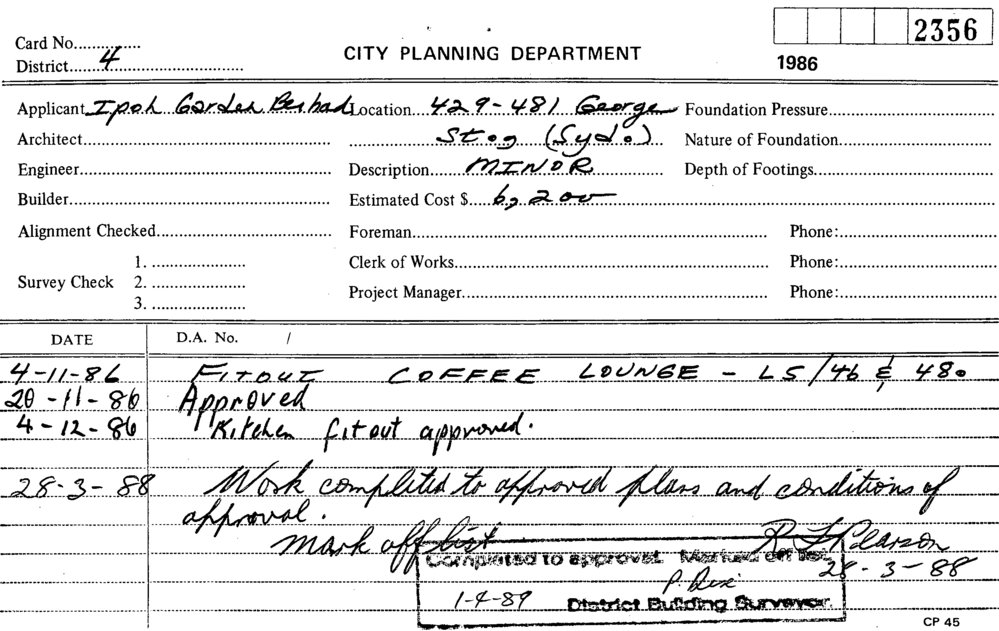 2356
Card No.
District 4
CITY PLANNING DEPARTMENT
1986
Applicant Ipoh Garden Berhad Location 429-481 George Foundation Pressure
Architect St. (Syd.) Nature of Foundation
Engineer Description MINOR Depth of Footings
Builder Estimated Cost $ 6,200
Alignment Checked Foreman Phone:
1. Clerk of Works Phone:
Survey Check 2.
3. Project Manager Phone:
DATE D.A. No. /
4-11-86 FITOUT COFFEE LOUNGE - LS/46 & 48.
20-11-86 Approved
4-12-86 Kitchen fitout approved.
28-3-88 Work completed to approved plans and conditions of
approval.
mark off list R Pearson
Completed to approval. Marked off list. 28-3-88
1-4-89 District Building Surveyor.
CP 45